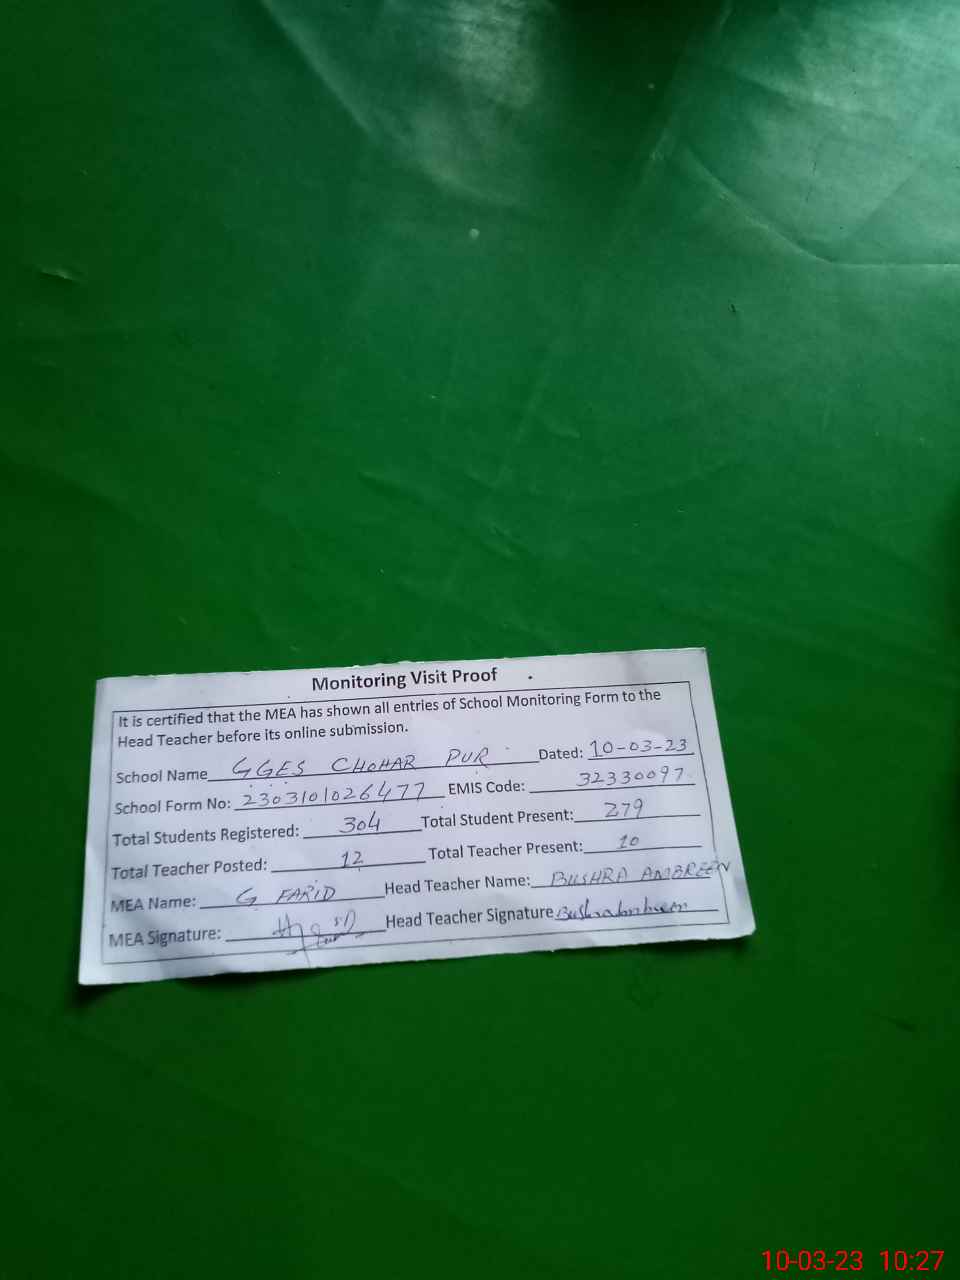 Monitoring Visit Proof
It is certified that the MEA has shown all entries of School Monitoring Form to the
Head Teacher before its online submission.
School Name GGES CHOHAR PUR Dated: 10-03-23
School Form No: 2303101026477 EMIS Code: 32330097
Total Students Registered: 304 Total Student Present: 279
Total Teacher Posted: 12 Total Teacher Present: 10
MEA Name: G FARID Head Teacher Name: BUSHRA AMBREEN
MEA Signature: Head Teacher Signature
10-03-23 10:27